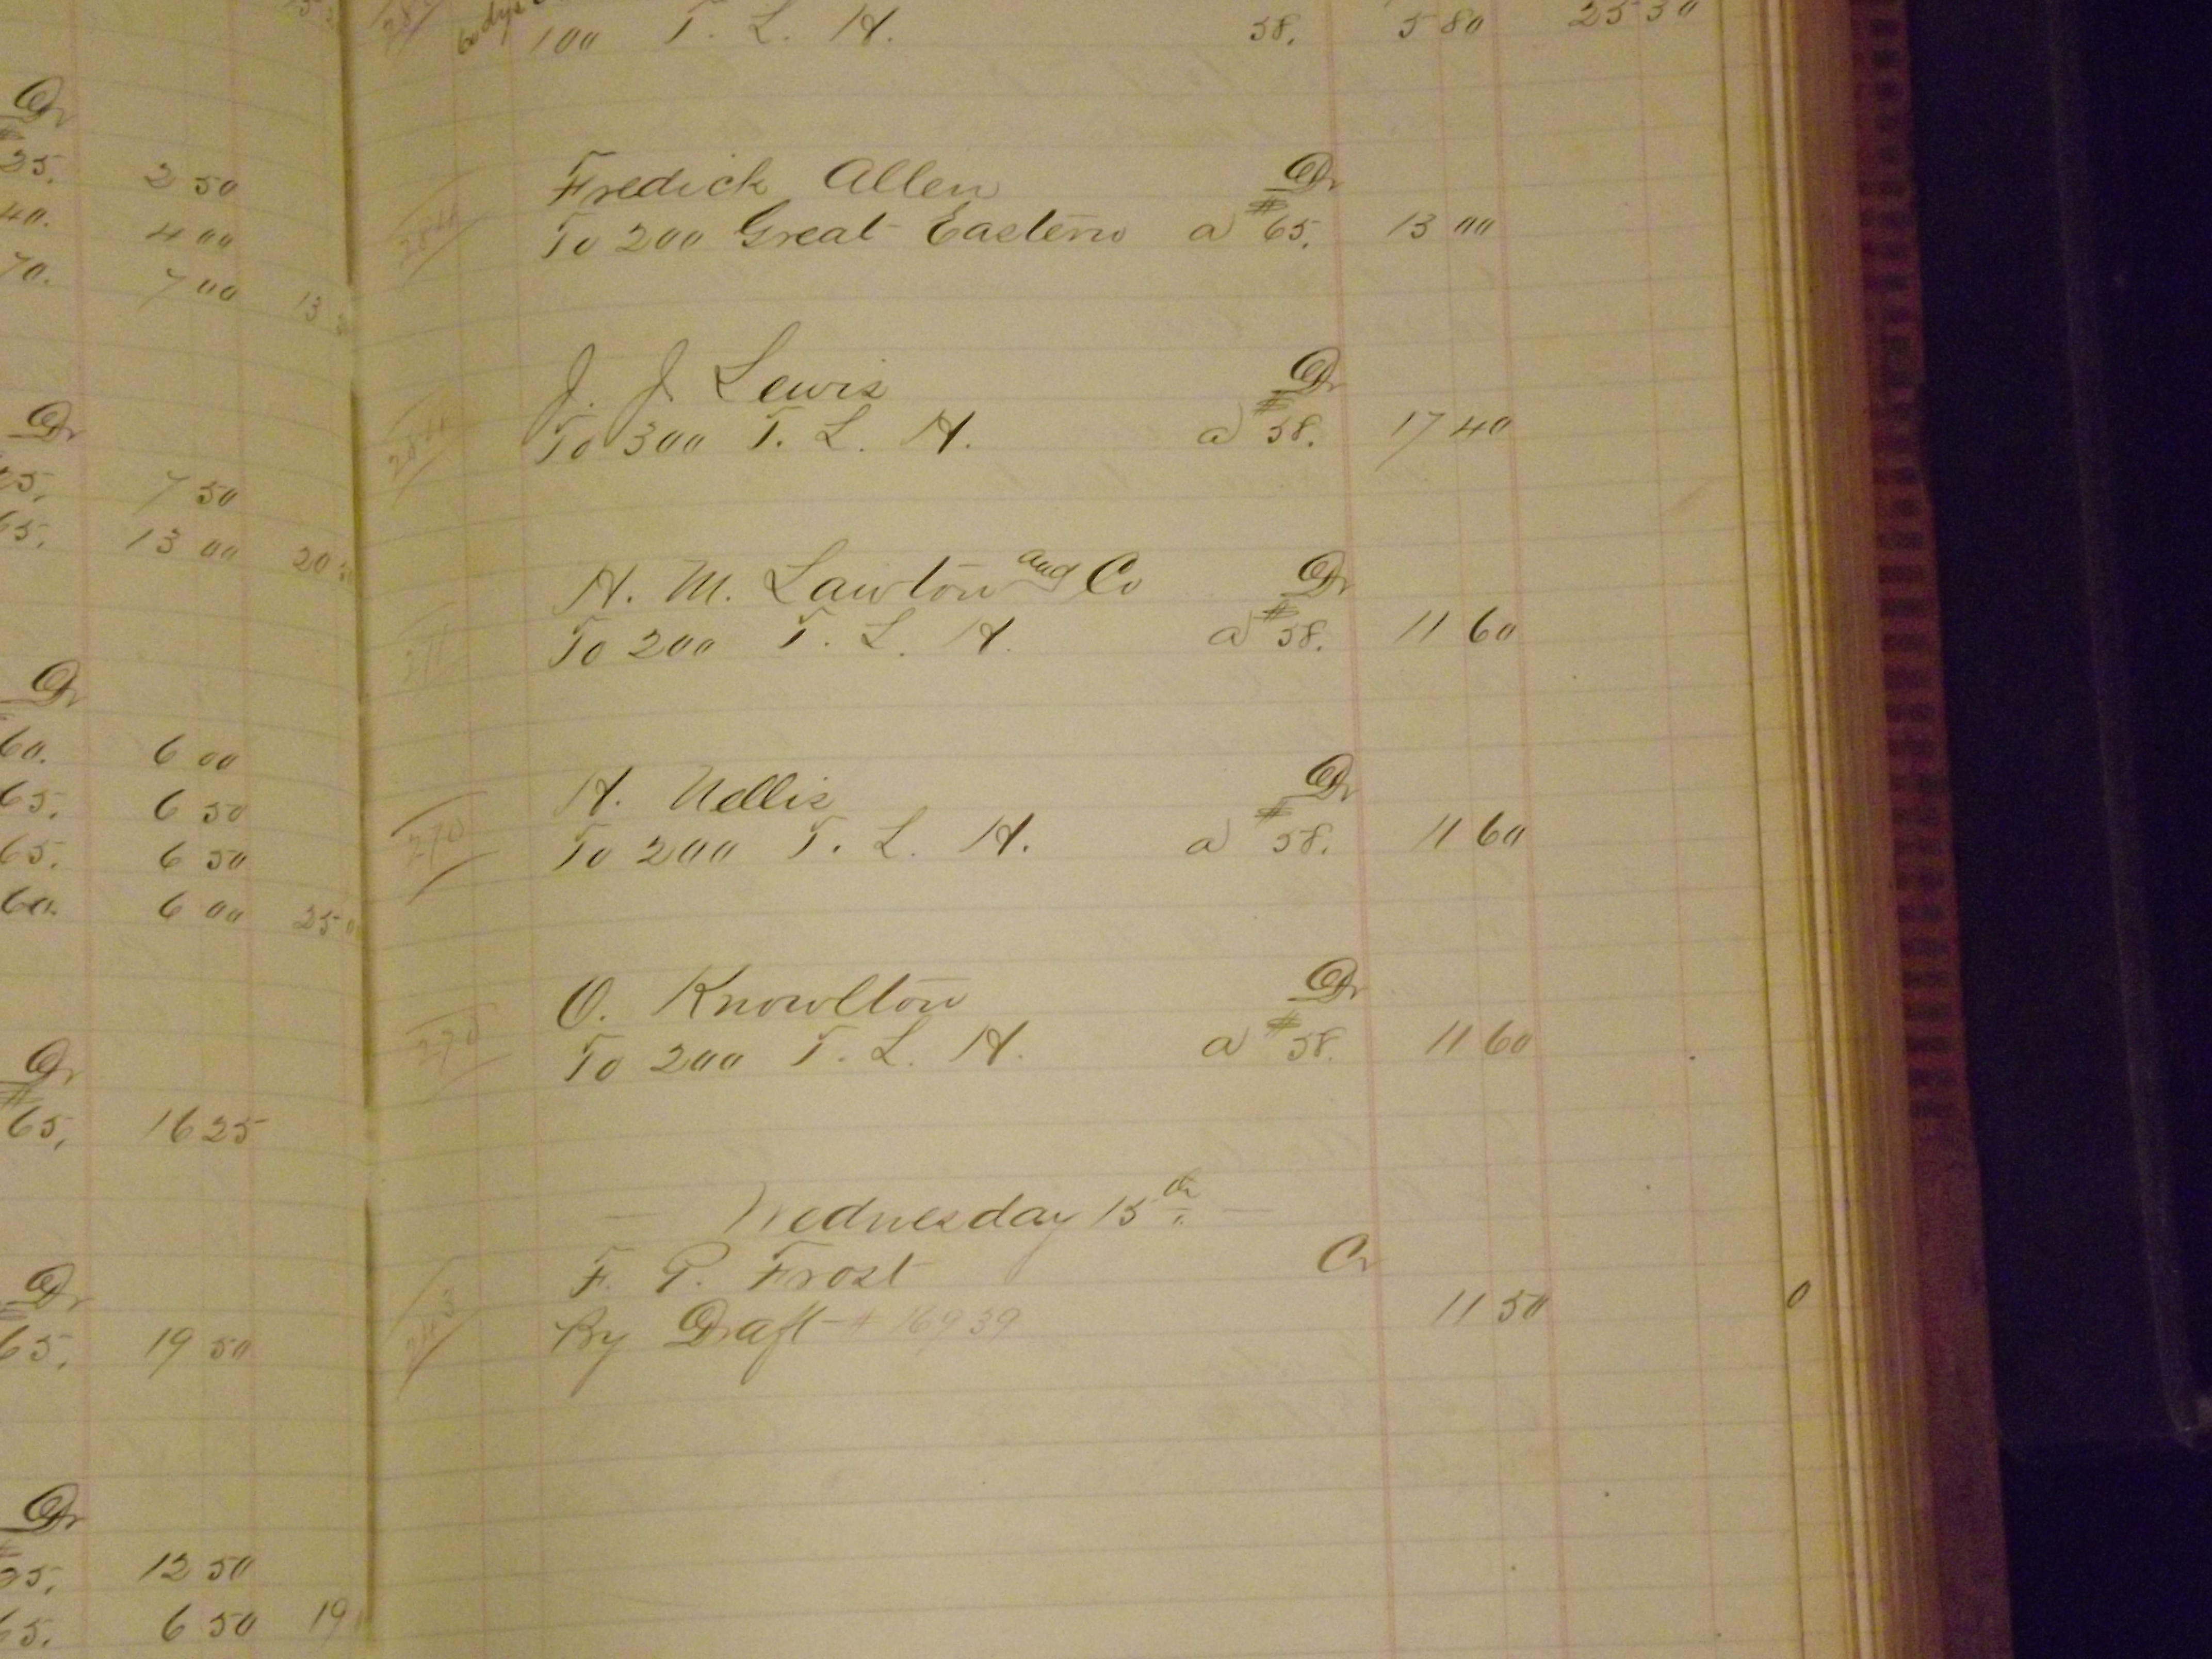 Dr
25. 2 50
40. 4 00
70. 7 00 13
Dr
7 50
65. 13 00 20
Dr
60. 6 00
65. 6 50
65. 6 50
60. 6 00 25 0
Dr
#
65. 16 25
Dr
65. 19 50
Dr
12 50
65. 6 50 19
60 dys
100 T. L. H. 58. 5 80 25 30
Fredick Allen Dr
284 To 200 Great Eastern a #65. 13 00
J. J. Lewis Dr
284 To 300 T. L. H. a #58. 17 40
H. M. Lawton and Co Dr
211 To 200 T. L. H. a #58. 11 60
H. Nellis Dr
270 To 200 T. L. H. a #58. 11 60
O. Knowlton Dr
270 To 200 T. L. H. a #58. 11 60
— Wednesday 15th —
F. P. Frost Cr
243 By Draft # 16939 11 50 0